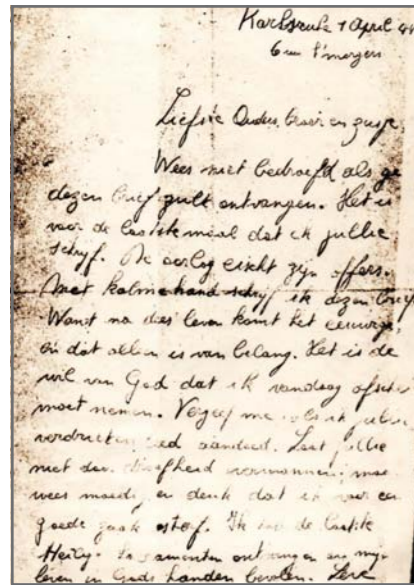 Karlsruhe 1 April 44
6 uur 's morgens
Liefste Ouders, broer en zusje,
Wees niet bedroefd als ge
dezen brief zult ontvangen. Het is
voor de laatste maal dat ik jullie
schrijf. De oorlog eischt zijn offers.
Met kalme hand schrijf ik dezen brief
Want na dit leven komt het eeuwige,
en dat alleen is van belang. Het is de
wil van God dat ik vandaag afscheid
moet nemen. Vergeef me als ik jullie
verdriet en leed aandeed. Laat jullie
niet door droefheid overmannen, maar
wees moedig en denk dat ik voor een
goede zaak sterf. Ik heb de laatste
Heilige Sacramenten ontvangen en mijn
leven in Gods handen bevolen.